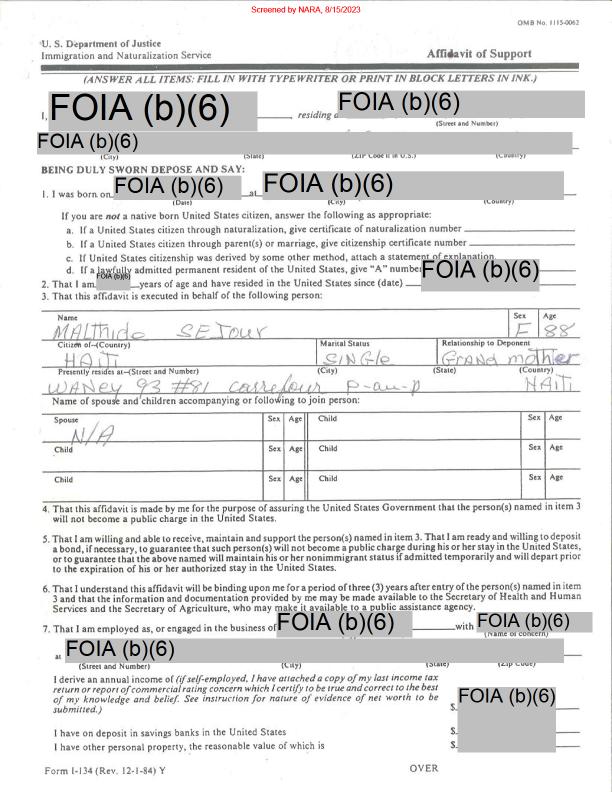 Screened by NARA, 8/15/2023
OMB No. 1115-0062
U. S. Department of Justice
Immigration and Naturalization Service
Affidavit of Support
(ANSWER ALL ITEMS: FILL IN WITH TYPEWRITER OR PRINT IN BLOCK LETTERS IN INK.)
I, FOIA (b)(6) , residing a FOIA (b)(6)
(Street and Number)
FOIA (b)(6)
(City) (State) (ZIP Code if in U.S.) (Country)
BEING DULY SWORN DEPOSE AND SAY:
1. I was born on FOIA (b)(6) at FOIA (b)(6)
(Date) (City) (Country)
If you are not a native born United States citizen, answer the following as appropriate:
a. If a United States citizen through naturalization, give certificate of naturalization number
b. If a United States citizen through parent(s) or marriage, give citizenship certificate number
c. If United States citizenship was derived by some other method, attach a statement of explanation.
d. If a lawfully admitted permanent resident of the United States, give "A" number FOIA (b)(6)
2. That I am FOIA (b)(6) years of age and have resided in the United States since (date)
3. That this affidavit is executed in behalf of the following person:
Name Sex Age
MALThide SEJOUR F 88
Citizen of-(Country) Marital Status Relationship to Deponent
HAITI SINGLE GRAND mother
Presently resides at-(Street and Number) (City) (State) (Country)
WANey 93 #81 carrefour P-au-p HAITI
Name of spouse and children accompanying or following to join person:
Spouse Sex Age Child Sex Age
N/A
Child Sex Age Child Sex Age
Child Sex Age Child Sex Age
4. That this affidavit is made by me for the purpose of assuring the United States Government that the person(s) named in item 3
will not become a public charge in the United States.
5. That I am willing and able to receive, maintain and support the person(s) named in item 3. That I am ready and willing to deposit
a bond, if necessary, to guarantee that such person(s) will not become a public charge during his or her stay in the United States,
or to guarantee that the above named will maintain his or her nonimmigrant status if admitted temporarily and will depart prior
to the expiration of his or her authorized stay in the United States.
6. That I understand this affidavit will be binding upon me for a period of three (3) years after entry of the person(s) named in item
3 and that the information and documentation provided by me may be made available to the Secretary of Health and Human
Services and the Secretary of Agriculture, who may make it available to a public assistance agency.
7. That I am employed as, or engaged in the business of FOIA (b)(6) with FOIA (b)(6)
(Name of concern)
at FOIA (b)(6)
(Street and Number) (City) (State) (Zip Code)
I derive an annual income of (if self-employed, I have attached a copy of my last income tax
return or report of commercial rating concern which I certify to be true and correct to the best
of my knowledge and belief. See instruction for nature of evidence of net worth to be
submitted.) $ FOIA (b)(6)
I have on deposit in savings banks in the United States $
I have other personal property, the reasonable value of which is $
Form I-134 (Rev. 12-1-84) Y OVER